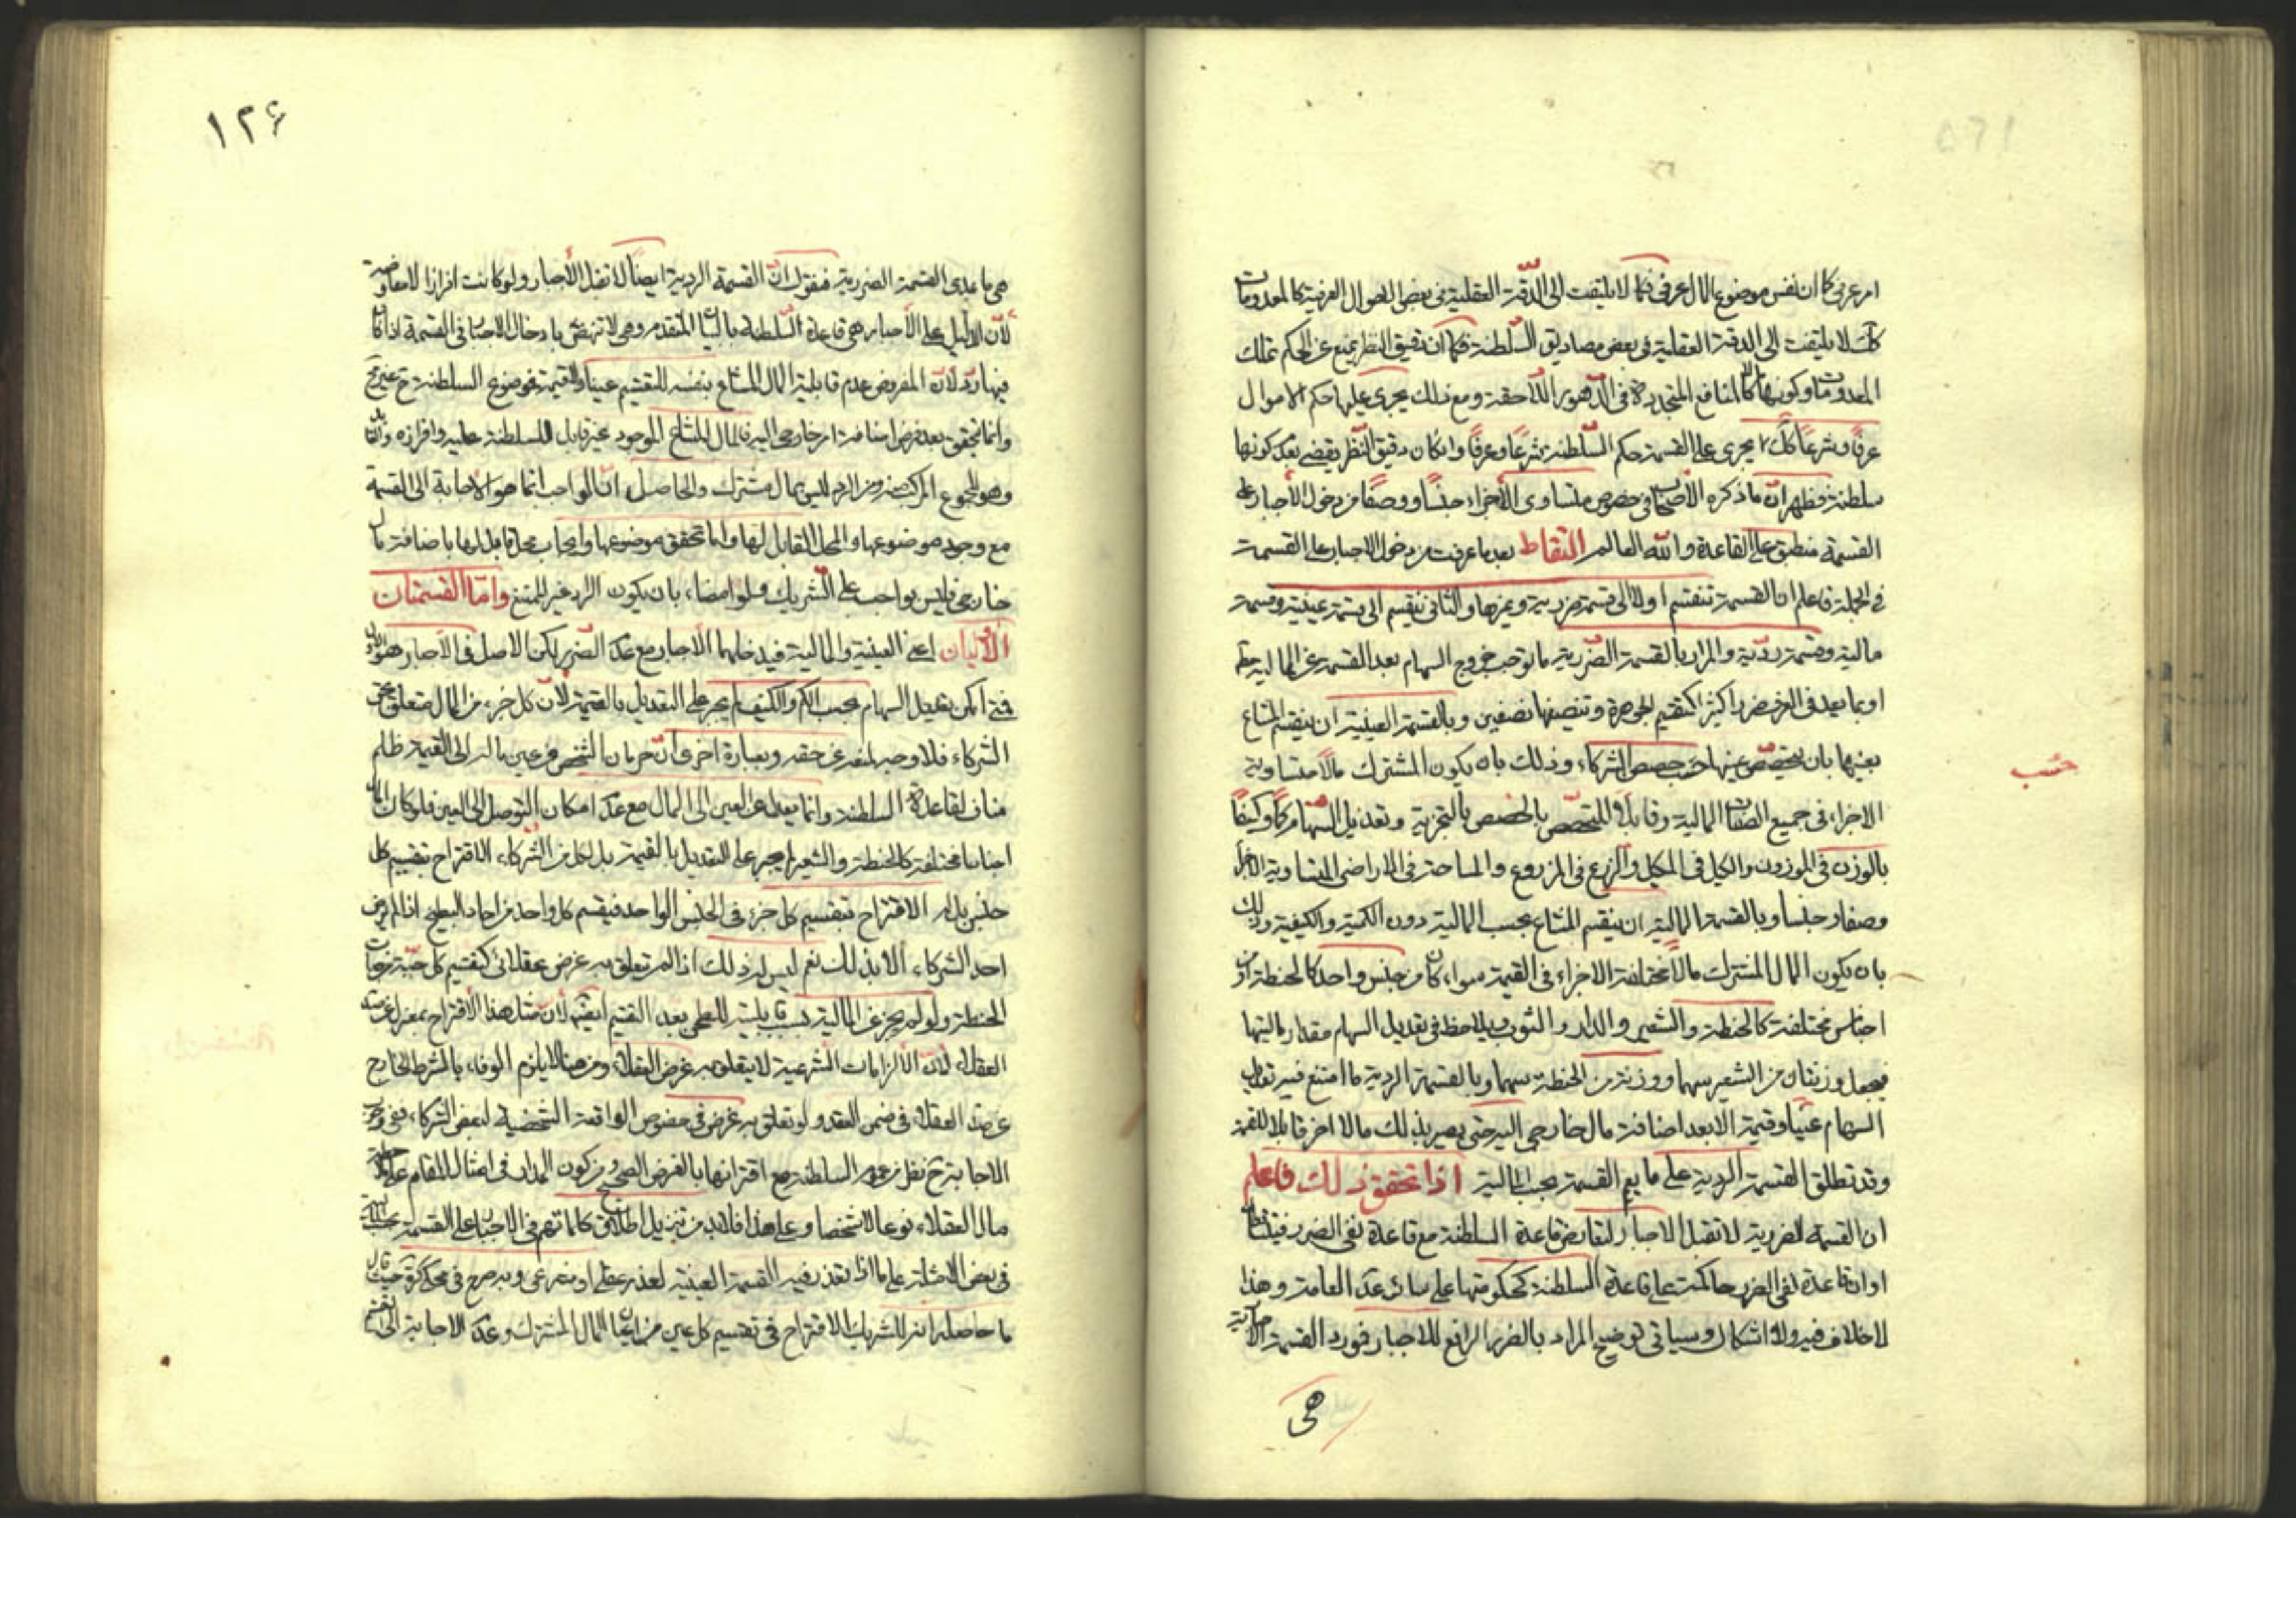 امر عرفي كما ان نفس موضوع المال عرفي فكما لا يلتفت الى الدقة العقلية في بعض الاموال العرفية كالمعدومات
كك لا يلتفت الى الدقة العقلية في بعض مصاديق السلطنة فكما ان تدقيق النظر يمنع عن الحكم بتملك
المعدومات وكونها مالا كالمنافع المتجددة في الدهور اللاحقة ومع ذلك يجرى عليها حكم الاموال
عرفا وشرعا كك يجرى على القسمة حكم السلطنة شرعا وعرفا وان كان دقيق النظر يقضي بعدم كونها
سلطنة فظهر ان ما ذكره الأصحاب في خصوص متساوى الأجزاء جنسا ووصفا من دخول الأجبار على
القسمة منطبق على القاعدة والله العالم التقاط بعد ما عرفت من دخول الاجبار على القسمة
في الجملة فاعلم ان القسمة تنقسم اولا الى قسمة ضررية وغيرها والثاني ينقسم الى قسمة عينية وقسمة
مالية وقسمة ردية والمراد بالقسمة الضررية ما توجب خروج السهام بعد القسمة عن المالية
او بما يعد في العرف ضررا كثيرا كتقسيم الجوهرة وتنصيفها نصفين وبالقسمة العينية ان ينقسم المشاع
بعينها بان يتخصص عينها حسب حصص الشركاء وذلك بان يكون المشترك مالا متساوية
حسب
الاجزاء في جميع الصفات المالية وقابلا للتخصص بالحصص بالتجزية وتعديل السهام كما وكيفا
بالوزن في الموزون والكيل في المكيل والزرع في المزروع والمساحة في الاراضى المتساوية الاجزاء
وصفا وجنسا وبالقسمة المالية ان ينقسم المشاع بحسب المالية دون الكمية والكيفية وذلك
بان يكون المال المشترك مالا مختلفة الاجزاء في القيمة سواء كان من جنس واحد كالحنطة او من
اجناس مختلفة كالحنطة والشعير والدار والثوب ويلاحظ في تعديل السهام مقدار ماليتها
فيجعل وزنتان من الشعير سهما ووزنة من الحنطة سهما وبالقسمة الردية ما امتنع فيه تعديل
السهام عينا وقيمة الا بعد اضافة مال خارجي اليه حتى يصير بذلك مالا اخر قابلا للقسمة
وقد تطلق القسمة الردية على ما يعم القسمة بحسب المالية اذا تحقق ذلك فاعلم
ان القسمة الضررية لا تقبل الاجبار لتعارض قاعدة السلطنة مع قاعدة نفى الضرر فيتساقطان
او ان قاعدة نفى الضرر حاكمة على قاعدة السلطنة كحكومتها على سائر العامة وهذا
لا خلاف فيه ولا اشكال وسياتى توضيح المراد بالضرر الرافع للاجبار فمورد القسمة
هى
١٢۶
هى ما عدى القسمة الضررية فنقول ان القسمة الردية ايضا لا تقبل الأجبار ولو كانت افرازا لا معاوضة
لأن الدليل على الأجبار هى قاعدة السلطنة بالبيان المتقدم وهى لا تنهض بادخال الاجبار في القسمة اذا كان
فيها رد لأن المفروض عدم قابلية المال المشاع بنفسه للتقسيم عينا والقيمة فموضوع السلطنة ح غير
وانما تحقق بعد فرض اضافة امر خارجى اليه فالمال المشاع الموجود غير قابل للسلطنة عليه وافرازه
وهو المجموع المركب منه ومن الرد ليس بمال مشترك والحاصل ان الواجب انما هو الاجابة الى القسمة
مع وجود موضوعها والمحل القابل لها واما تحقق موضوعها وايجاب محل قابل لها باضافة مال
خارجى فليس بواجب على الشريك ولو امضاء بان يكون الراد غير الممتنع واما القسمتان
الأوليان اعنى العينية والمالية فيدخلهما الأجبار مع عدم الضرر لكن الاصل في الأجبار هو
فمتى امكن تعديل السهام بحسب الكم والكيف لم يجبر على التعديل بالقيمة لأن كل جزء من المال متعلق حق
الشركاء فلا وجه لمنعه عن حقه وبعبارة اخرى ان حرمان الشخص من عين ماله الى القيمة ظلم
مناف لقاعدة السلطنة وانما يعدل عن العين الى المال مع عدم امكان التوصل الى العين فلو كان المال
اجناسا مختلفة كالحنطة والشعير لم يجبر على التعديل بالقيمة بل لكل من الشركاء الاقتراح بتقسيم كل
جنس بل له الاقتراح بتقسيم كل جزء في الجنس الواحد فيقسم كل واحد من احاد البطيخ اذا لم يرض
احد الشركاء الا بذلك نعم ليس له ذلك اذا لم تعلق به غرض عقلائى كتقسيم كل حبة من حبات
الحنطة ولو لم يخرج عن المالية بسبب قابليته للطحن بعد التقسيم ايضا لأن مثل هذا الأقتراح بمعزل عن
العقلاء لأن الالزامات الشرعية لا يتعلق به غرض العقلاء ومن هنا لا يلزم الوفاء بالشرط الخارج
عن العقلاء في ضمن العقد ولو تعلق به غرض في خصوص الواقعة الشخصية لبعض الشركاء ففى وجوب
الاجابة ح نظر من عموم السلطنة مع اقترانها بالغرض الصحيح ومن كون المدار في امثال المقام على
مال العقلاء نوعا لا شخصا وعلى هذا فلابد من تنزيل اطلاق كلماتهم في الاجبار على القسمة بحسب
في بعض الامثلة على ما اذا تعذر فيه القسمة العينية لعذر عقلى او شرعى وبه صرح في محكى كره حيث قال
ما حاصله انه للشريك الاقتراح في تقسيم كل عين من اعيان المال المشترك وعدم الاجابة الى